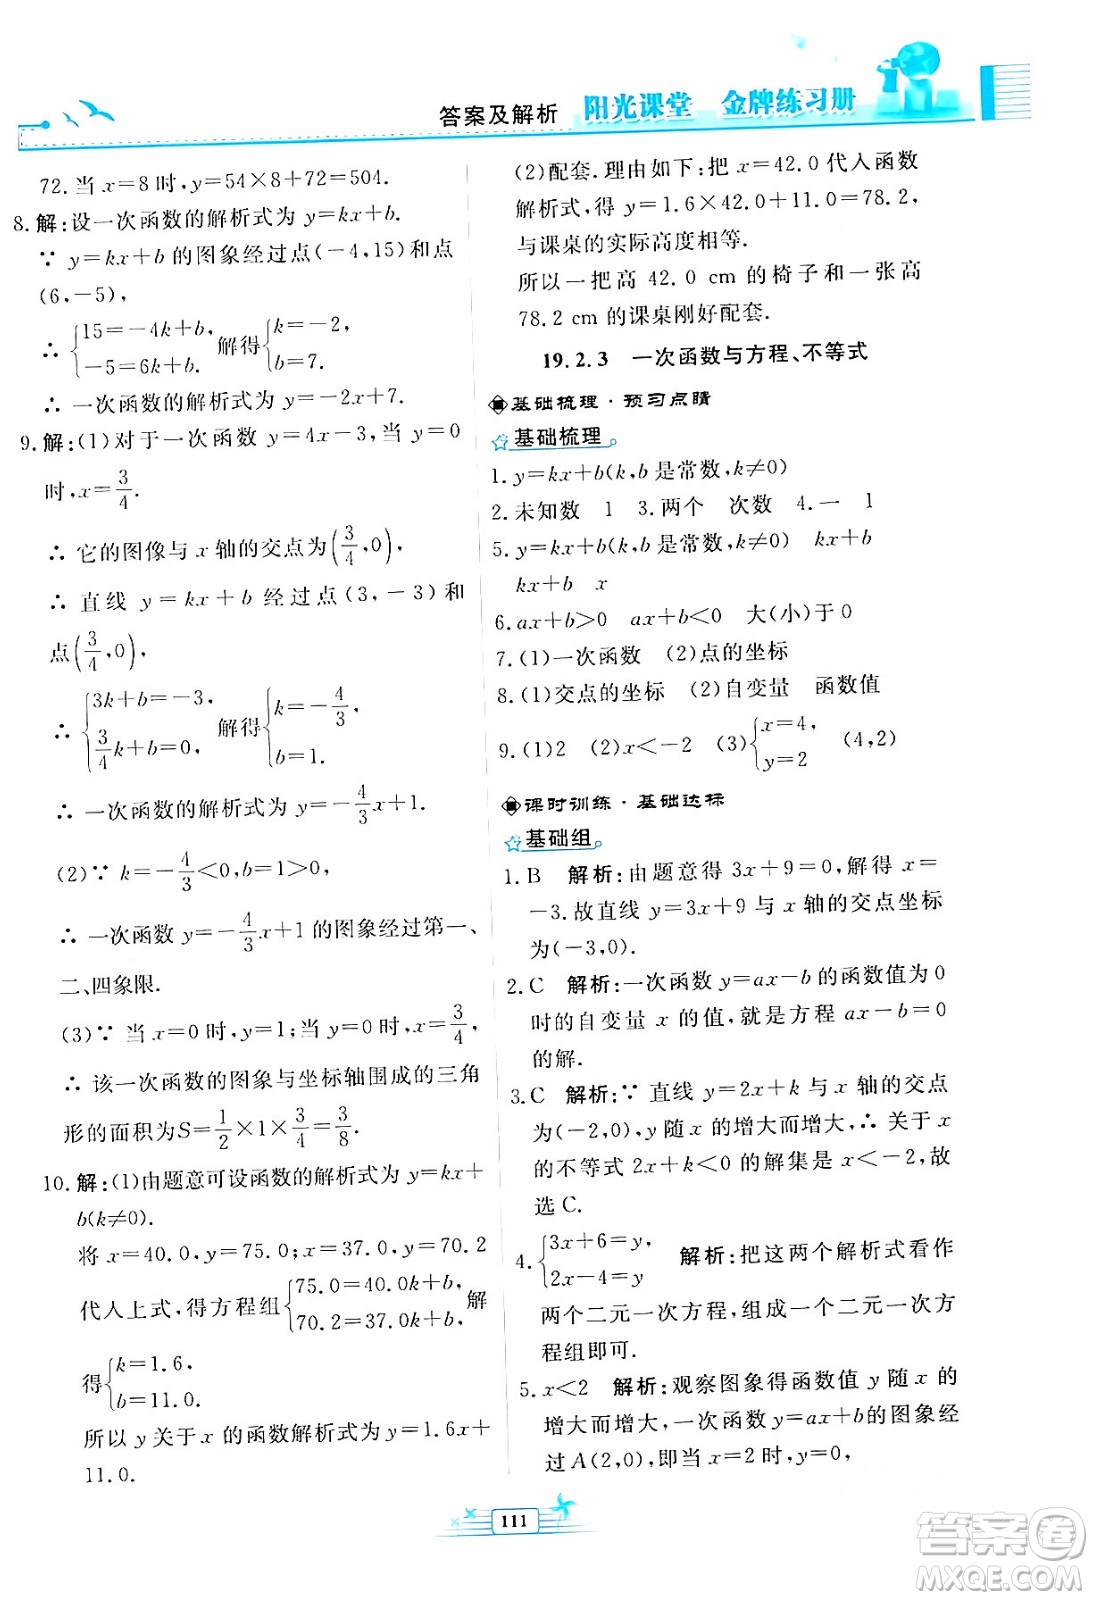 答案及解析 阳光课堂 金牌练习册
72.当 x=8 时,y=54×8+72=504.
8.解:设一次函数的解析式为 y=kx+b.
∵ y=kx+b 的图象经过点(-4,15)和点
(6,-5),
∴ {15=-4k+b, -5=6k+b, 解得 {k=-2, b=7.
∴ 一次函数的解析式为 y=-2x+7.
9.解:(1)对于一次函数 y=4x-3,当 y=0
时,x=3/4.
∴ 它的图像与 x 轴的交点为(3/4,0),
∴ 直线 y=kx+b 经过点(3,-3)和
点(3/4,0),
∴ {3k+b=-3, 3/4k+b=0, 解得 {k=-4/3, b=1.
∴ 一次函数的解析式为 y=-4/3x+1.
(2)∵ k=-4/3<0,b=1>0,
∴ 一次函数 y=-4/3x+1 的图象经过第一、
二、四象限.
(3)∵ 当 x=0 时,y=1;当 y=0 时,x=3/4,
∴ 该一次函数的图象与坐标轴围成的三角
形的面积为S=1/2×1×3/4=3/8.
10.解:(1)由题意可设函数的解析式为 y=kx+
b(k≠0).
将 x=40.0,y=75.0;x=37.0,y=70.2
代人上式,得方程组 {75.0=40.0k+b, 70.2=37.0k+b, 解
得 {k=1.6, b=11.0.
所以 y 关于 x 的函数解析式为 y=1.6x+
11.0.
(2)配套.理由如下:把 x=42.0 代人函数
解析式,得 y=1.6×42.0+11.0=78.2,
与课桌的实际高度相等.
所以一把高 42.0 cm 的椅子和一张高
78.2 cm 的课桌刚好配套.
19.2.3 一次函数与方程、不等式
基础梳理·预习点睛
基础梳理
1.y=kx+b(k,b 是常数,k≠0)
2.未知数 1 3.两个 次数 4.一 1
5.y=kx+b(k,b是常数,k≠0) kx+b
kx+b x
6.ax+b>0 ax+b<0 大(小)于 0
7.(1)一次函数 (2)点的坐标
8.(1)交点的坐标 (2)自变量 函数值
9.(1)2 (2)x<-2 (3){x=4, y=2 (4,2)
课时训练·基础达标
基础组
1.B 解析:由题意得 3x+9=0,解得 x=
-3.故直线 y=3x+9 与 x 轴的交点坐标
为(-3,0).
2.C 解析:一次函数 y=ax-b 的函数值为 0
时的自变量 x 的值,就是方程 ax-b=0
的解.
3.C 解析:∵ 直线 y=2x+k 与 x 轴的交点
为(-2,0),y 随 x 的增大而增大,∴ 关于 x
的不等式 2x+k<0 的解集是 x<-2,故
选 C.
4.{3x+6=y, 2x-4=y 解析:把这两个解析式看作
两个二元一次方程,组成一个二元一次方
程组即可.
5.x<2 解析:观察图象得函数值 y 随 x 的
增大而增大,一次函数 y=ax+b的图象经
过 A(2,0),即当 x=2 时,y=0,
111
答案卷
MXQE.COM